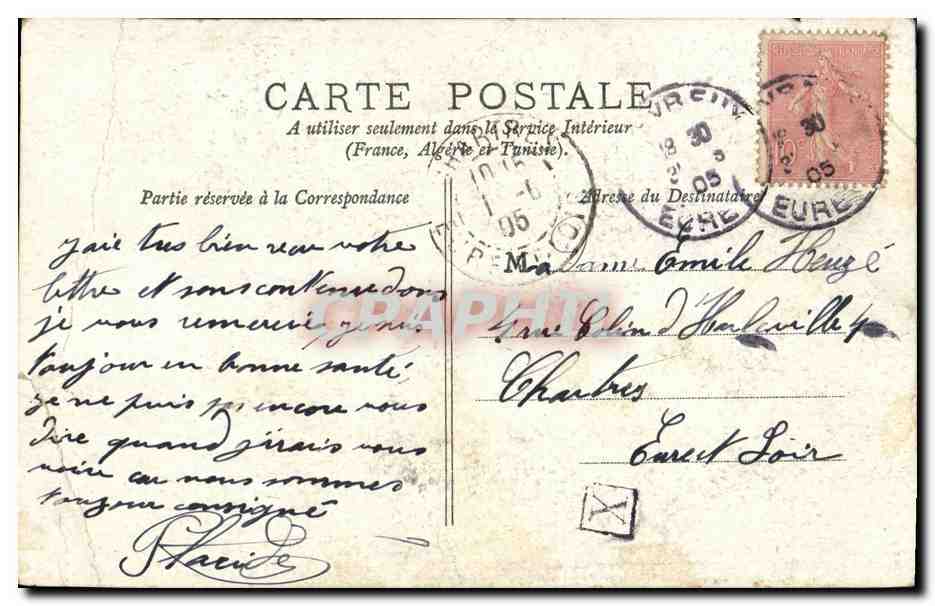 CARTE POSTALE
A utiliser seulement dans le Service Intérieur
(France, Algérie et Tunisie).
Partie réservée à la Correspondance
Adresse du Destinataire
jaie tres bien recu votre
lettre et sons contenue dons
je vous remercie, je suis
toujour en bonne santé,
je ne puis encore vous
dire quand j'irais vous
voire car nous sommes
toujour consigné
Placide
Madame Emile Heuzé
rue Colin d'Harleville 4
Chartres
Eure et Loir
REPUBLIQUE FRANÇAISE
10c
EVREUX
18 30
05
EURE
EVREUX
30
05
EURE
CHARTRES
1 -6
05
X
CRAPHT